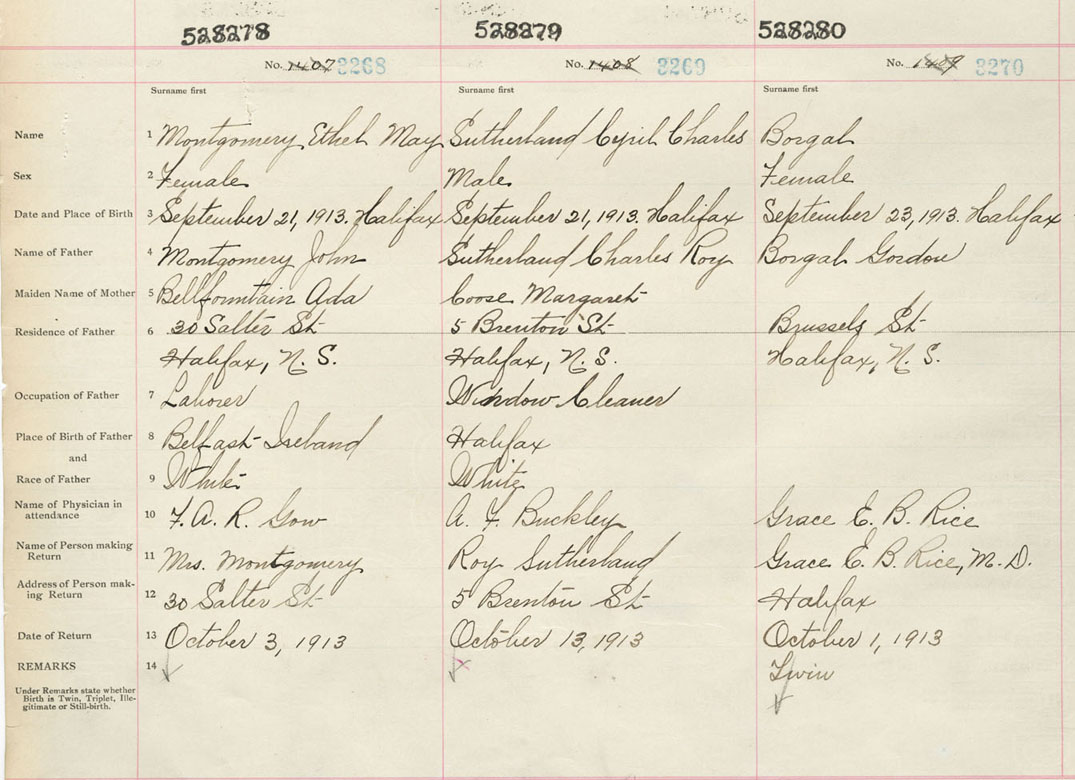 528278 528279 528280
No. 1407 3268 No. 1408 3269 No. 1409 3270
Surname first Surname first Surname first
Name 1 Montgomery Ethel May Sutherland Cyril Charles Borgal
Sex 2 Female Male Female
Date and Place of Birth 3 September 21, 1913. Halifax September 21, 1913. Halifax September 23, 1913. Halifax
Name of Father 4 Montgomery John Sutherland Charles Roy Borgal Gordon
Maiden Name of Mother 5 Bellfountain Ada Coose Margaret
Residence of Father 6 30 Salter St 5 Brenton St Brussels St
Halifax, N. S. Halifax, N. S. Halifax, N. S.
Occupation of Father 7 Laborer Window Cleaner
Place of Birth of Father 8 Belfast Ireland Halifax
and
Race of Father 9 White White
Name of Physician in
attendance 10 F. A. R. Gow A. F. Buckley Grace E. B. Rice
Name of Person making
Return 11 Mrs. Montgomery Roy Sutherland Grace E. B. Rice, M. D.
Address of Person mak-
ing Return 12 30 Salter St 5 Brenton St Halifax
Date of Return 13 October 3, 1913 October 13, 1913 October 1, 1913
REMARKS 14 Twin
Under Remarks state whether
Birth is Twin, Triplet, Ille-
gitimate or Still-birth.